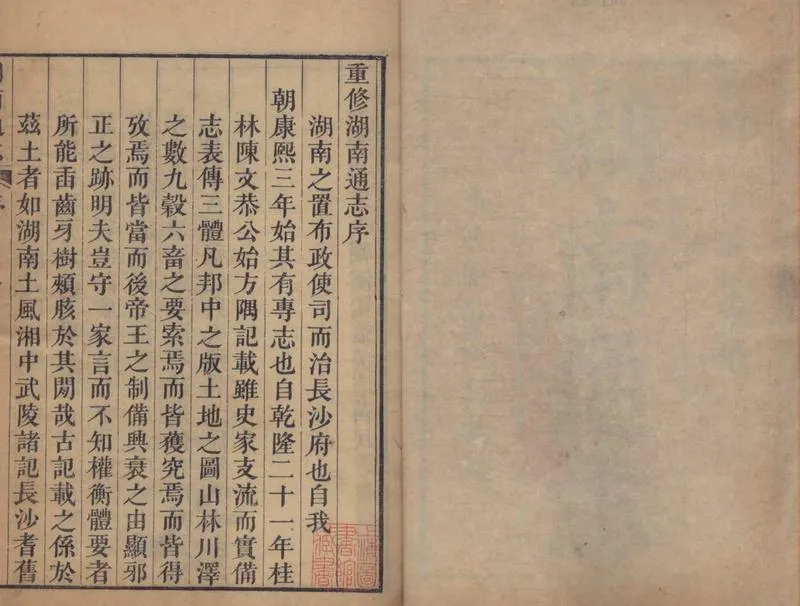 重修湖南通志序
湖南之置布政使司而治長沙府也自我
朝康熙三年始其有專志也自乾隆二十一年桂
林陳文恭公始方隅記載雖史家支流而實備
志表傳三體凡邦中之版土地之圖山林川澤
之數九穀六畜之要索焉而皆獲究焉而皆得
攷焉而皆當而後帝王之制備興衰之由顯邪
正之跡明夫豈守一家言而不知權衡體要者
所能臿齒牙樹頰胲於其閒哉古記載之係於
茲土者如湖南土風湘中武陵諸記長沙耆舊